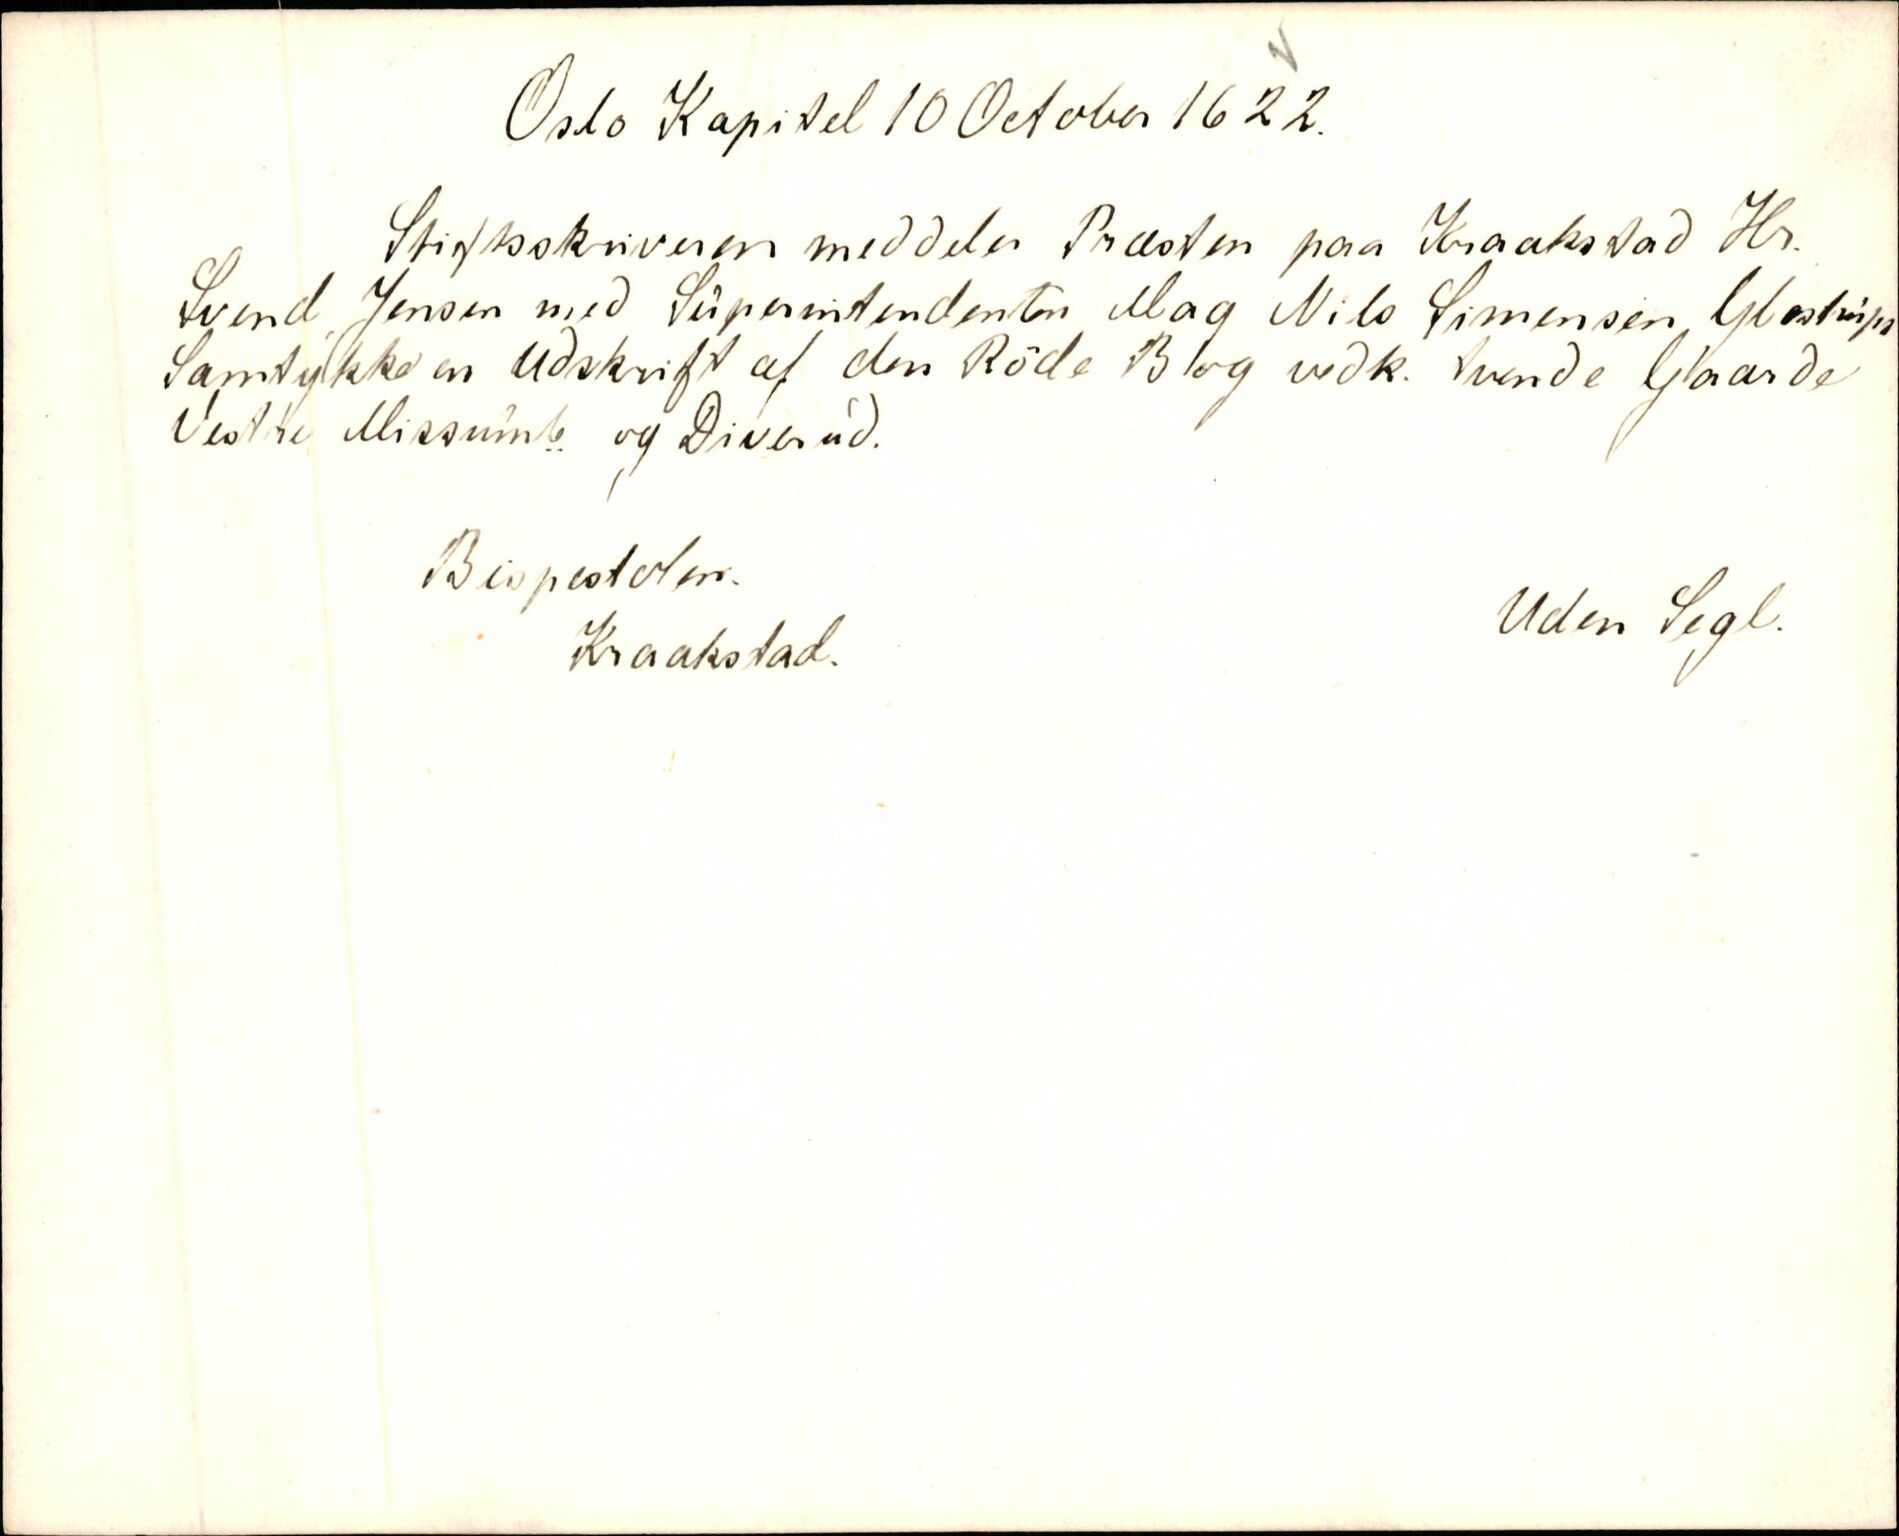 Oslo Kapitel 10 October 1622.
Stiftsskriveren meddeler Præsten paa Kraakstad Hr.
Svend Jensen med Süperintendenten Mag Nils Simensen Glostrüps
Samtykke en Udskrift af den Röde Bog vedk. tvende Gaarde
Vestre Missümb og Diverüd.
Bispestolen.
Kraakstad.
Uden Segl.